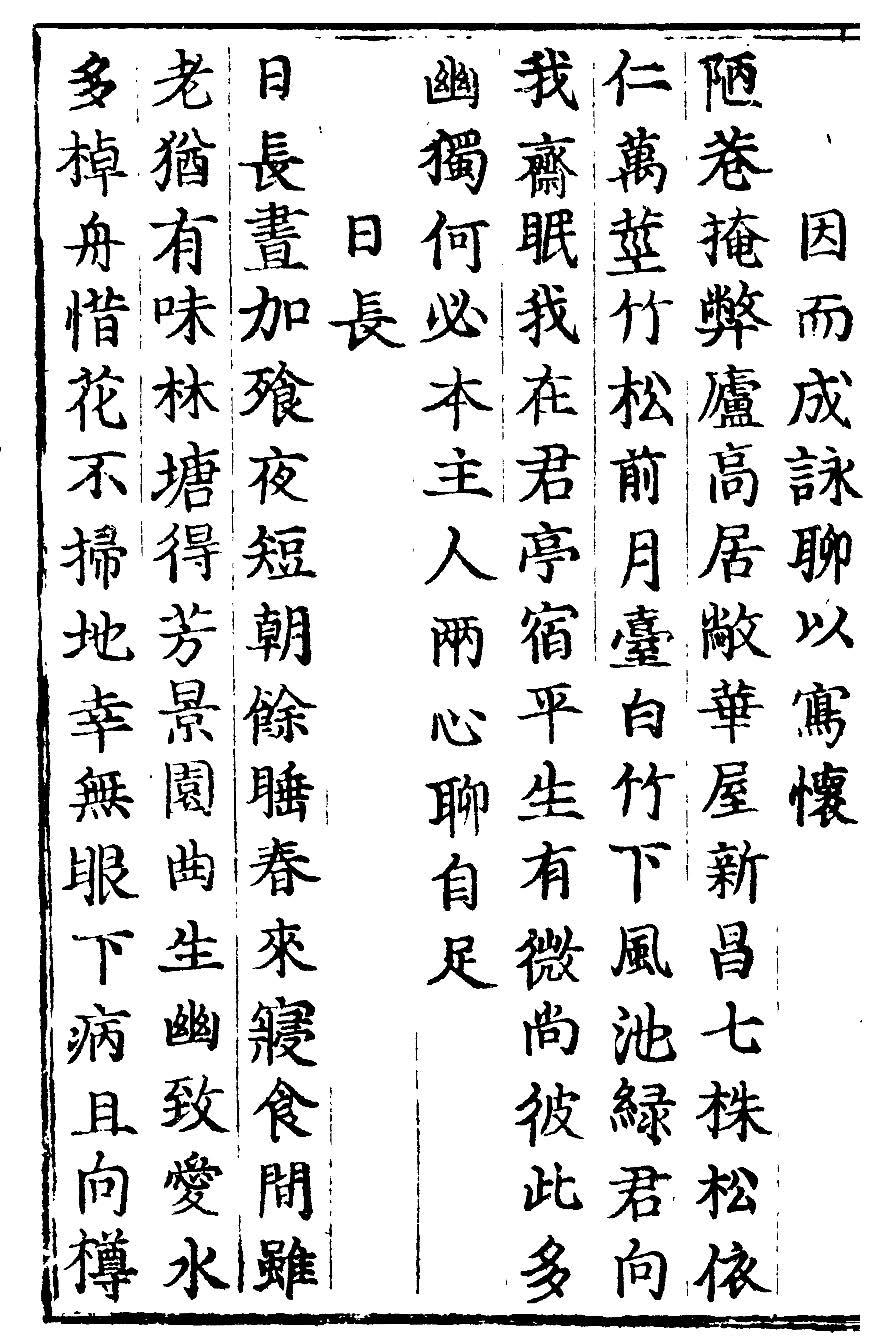 因而成詠聊以寫懷
陋巷掩弊廬高居敞華屋新昌七株松依
仁萬莖竹松前月臺白竹下風池緑君向
我齋眠我在君亭宿平生有微尚彼此多
幽獨何必本主人兩心聊自足
日長
日長晝加飱夜短朝餘睡春來寢食間雖
老猶有味林塘得芳景園曲生幽致愛水
多棹舟惜花不掃地幸無眼下病且向樽